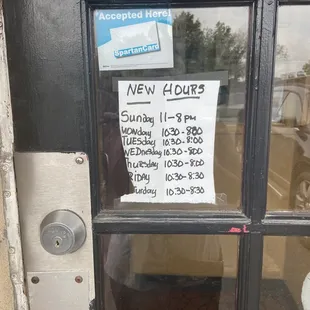 Accepted Here!
SpartanCard
NEW HOURS
Sunday 11-8pm
MONday 10:30-8:00
TUESday 10:30-8:00
WEDNesday 10:30-8:00
Thursday 10:30-8:00
FRIDAY 10:30-8:30
Saturday 10:30-8:30